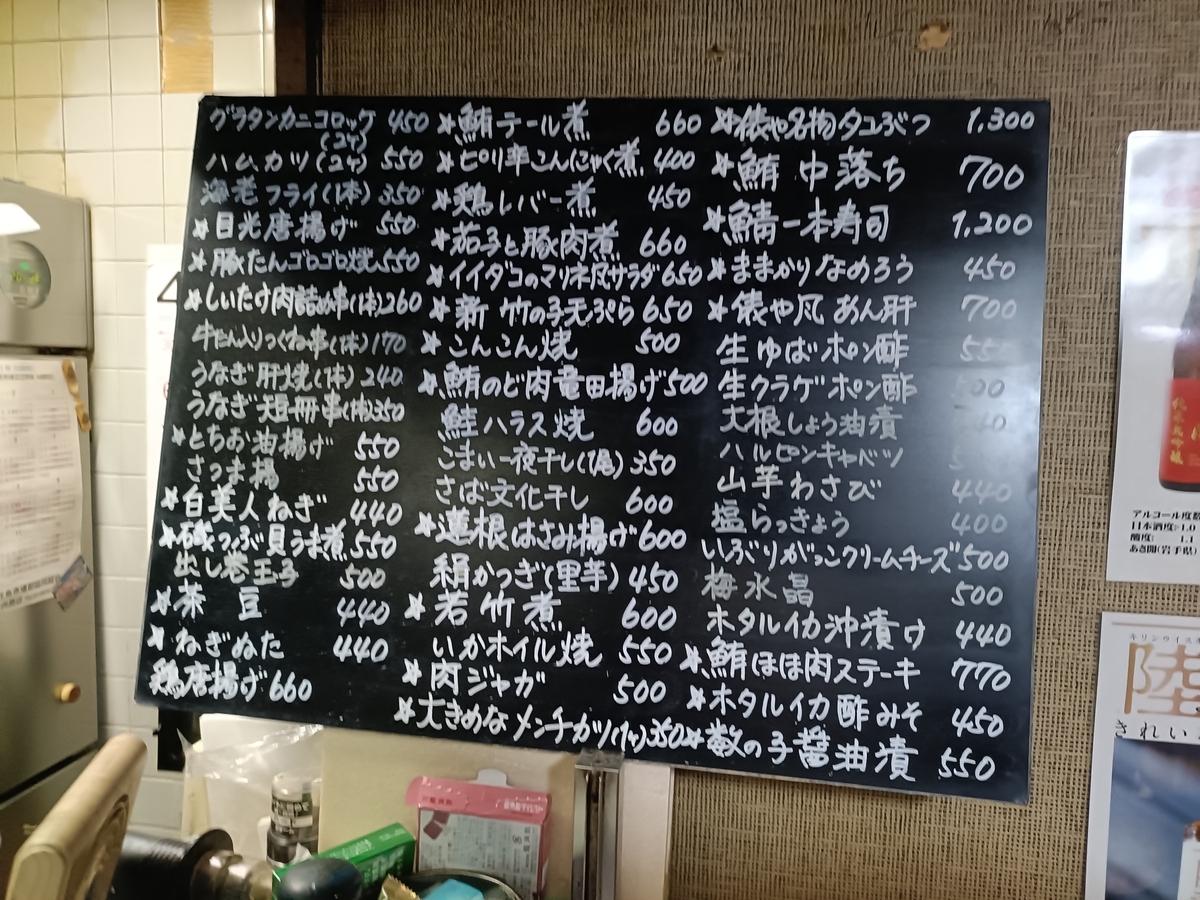 グラタンカニコロッケ 450
(2ケ)
ハムカツ(2ケ) 550
海老フライ(1本) 350
☆目光唐揚げ 550
☆豚たんゴロゴロ焼 550
☆しいたけ肉詰め串(1本) 260
牛たん入りつくね串(1本) 170
うなぎ肝焼(1本) 240
うなぎ短冊串(1本) 350
☆とちお油揚げ 550
さつま揚 550
☆白美人ねぎ 440
☆磯つぶ貝うま煮 550
出し巻玉子 500
☆茶豆 440
☆ねぎぬた 440
鶏唐揚げ 660
☆鮪テール煮 660
☆ピリ辛こんにゃく煮 400
☆鶏レバー煮 450
☆茄子と豚肉煮 660
☆イイダコのマリネ風サラダ 650
☆新竹の子天ぷら 650
☆こんこん焼 500
☆鮪のど肉竜田揚げ 500
鮭ハラス焼 600
こまい一夜干し(1尾) 350
さば文化干し 600
☆蓮根はさみ揚げ 600
絹かつぎ(里芋) 450
☆若竹煮 600
いかホイル焼 550
☆肉ジャガ 500
☆大きめなメンチカツ(1ケ) 350
☆俵や名物タコぶつ 1,300
☆鮪中落ち 700
☆鯖一本寿司 1,200
☆ままかりなめろう 450
☆俵や風あん肝 700
生ゆばポン酢
生クラゲポン酢
大根しょう油漬
ハルピンキャベツ
山芋わさび 440
塩らっきょう 400
いぶりがっこクリームチーズ 500
梅水晶 500
ホタルイカ沖漬け 440
☆鮪ほほ肉ステーキ 770
☆ホタルイカ酢みそ 450
☆数の子醤油漬 550
アルコール度数
日本酒度
酸度: 1.1
あさ開(岩手県)
キリンウイス
陸
きれい